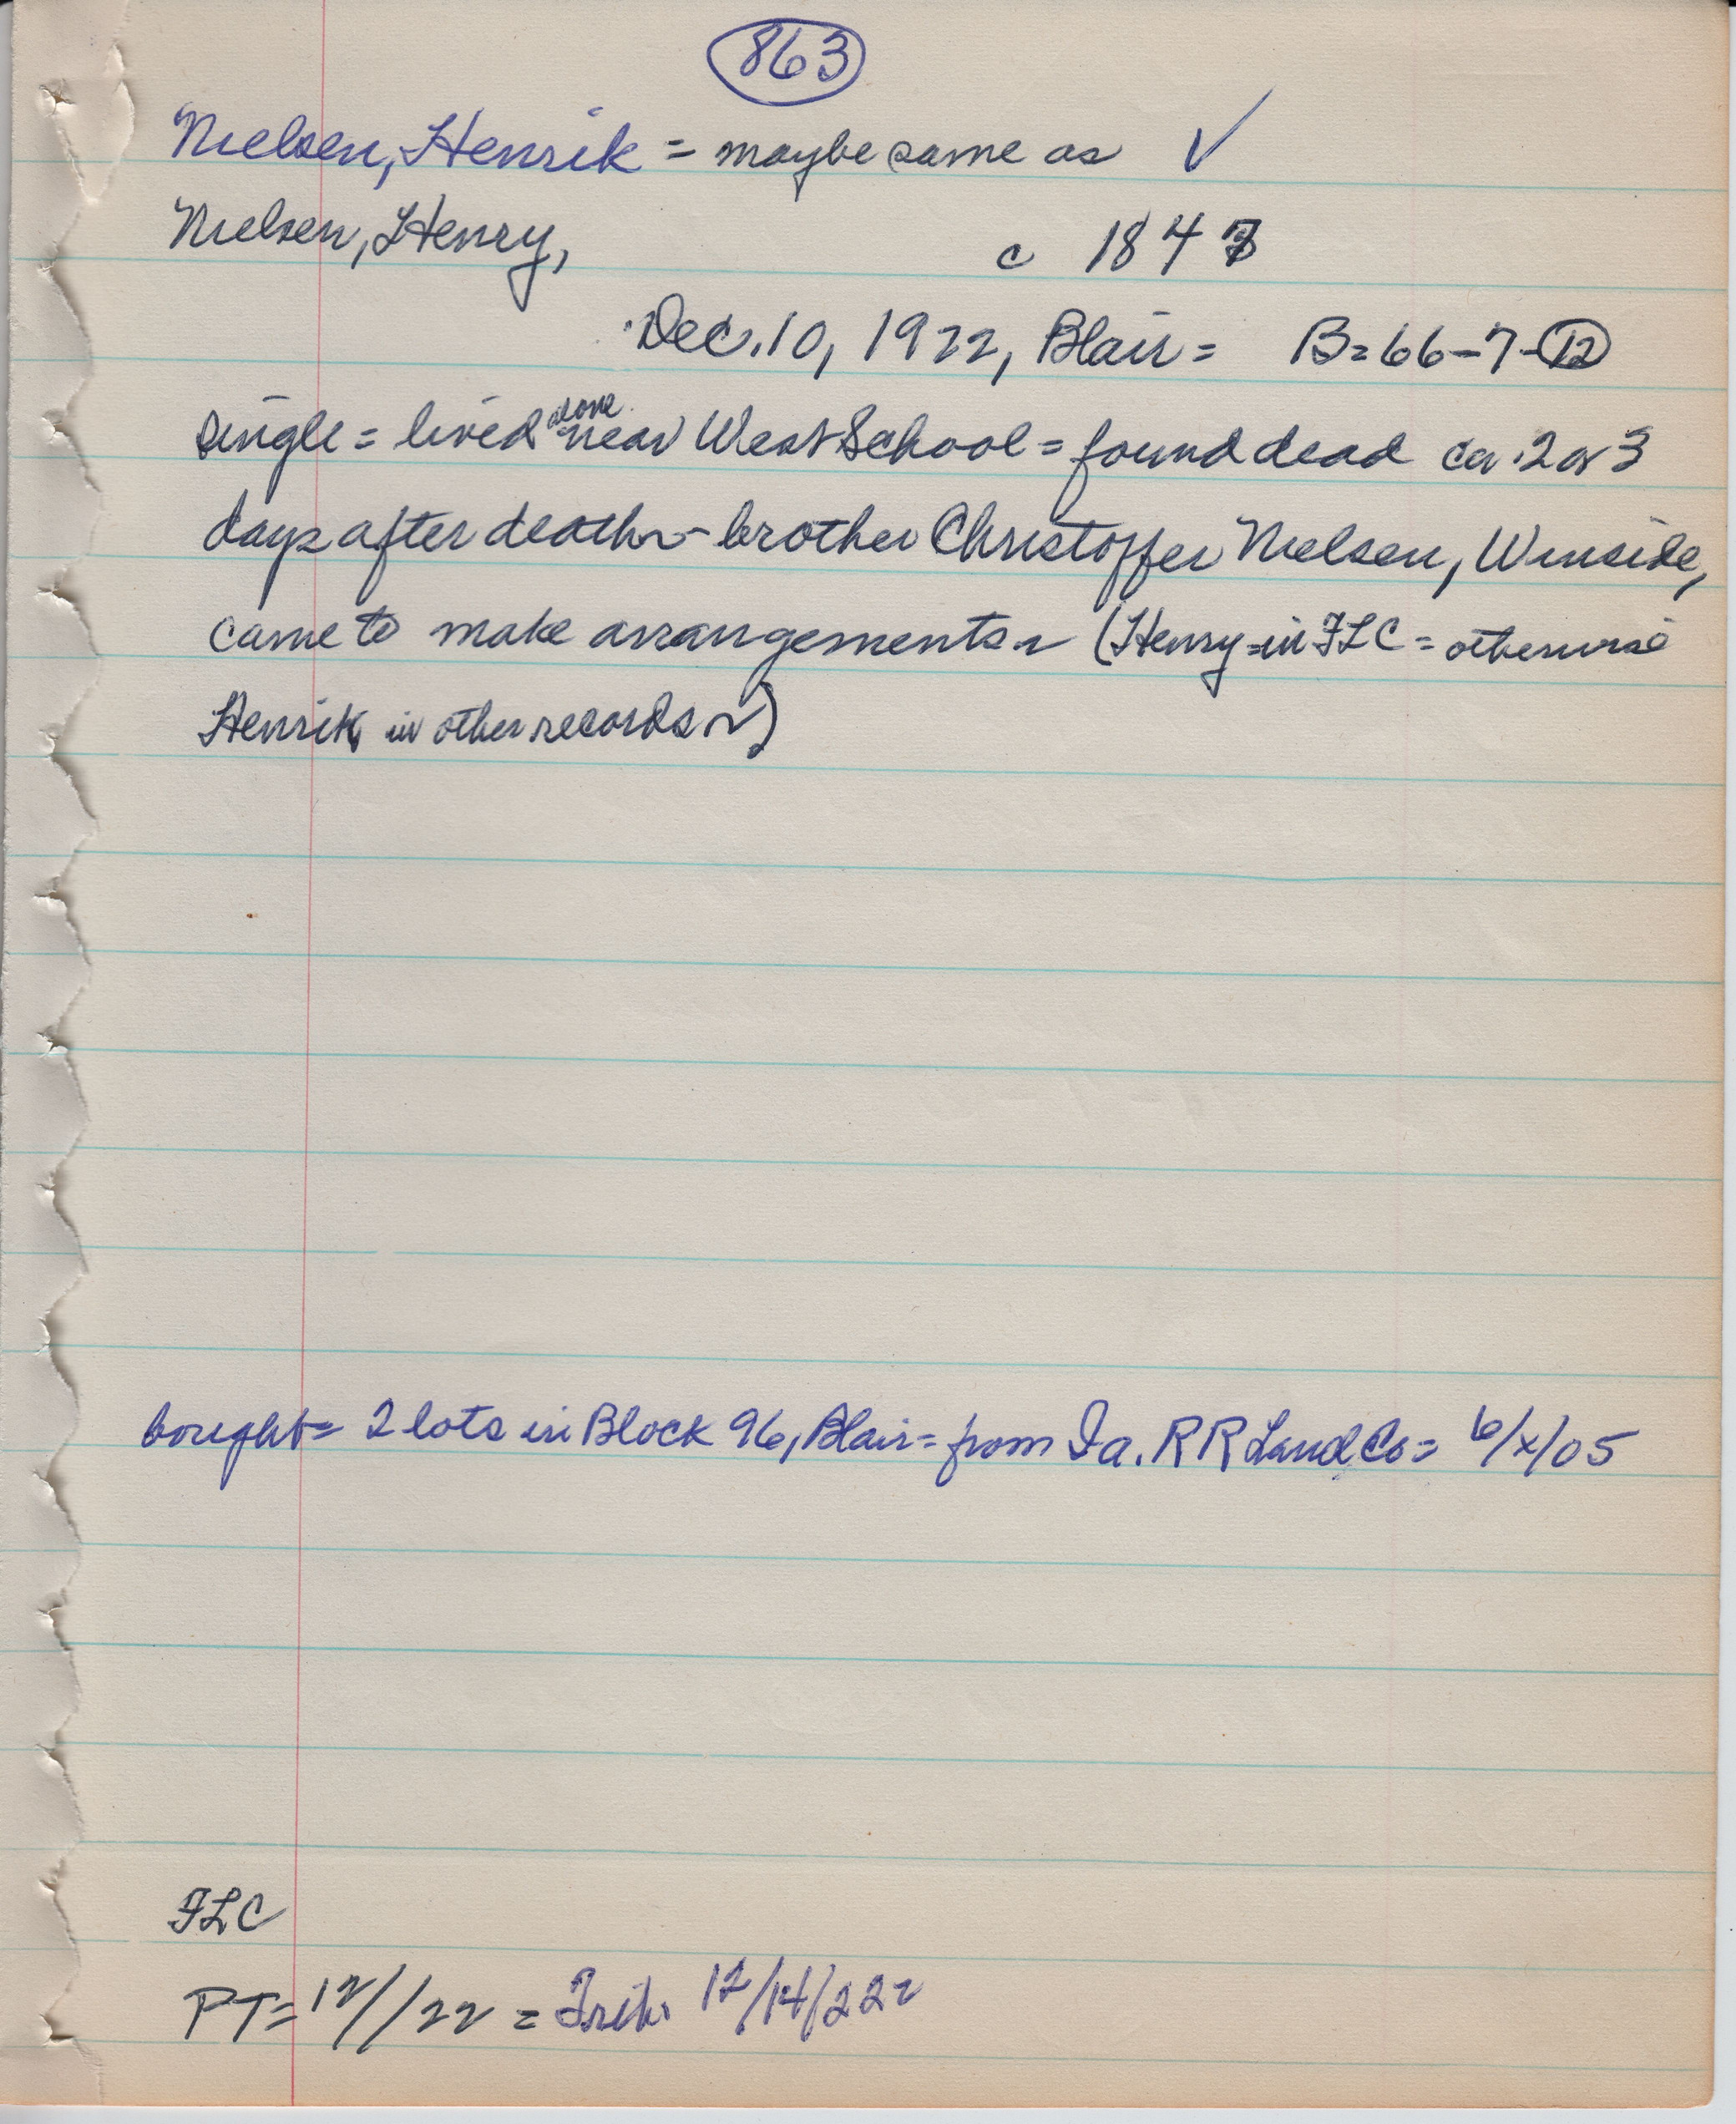 863
Nielsen, Henrik = maybe same as ✓
Nielsen, Henry, c 184
Dec. 10, 1922, Blair = B=66-7-12
single = lived alone near West School = found dead ca. 2 or 3
days after death - brother Christoffer Nielsen, Winside,
came to make arrangements (Henry=in FLC = otherwise
Henrik in other records)
bought = 2 lots in Block 96, Blair = from Ia. RR Land Co = 6/x/05
FLC
PT=12/ /22 = Trib. 12/14/22